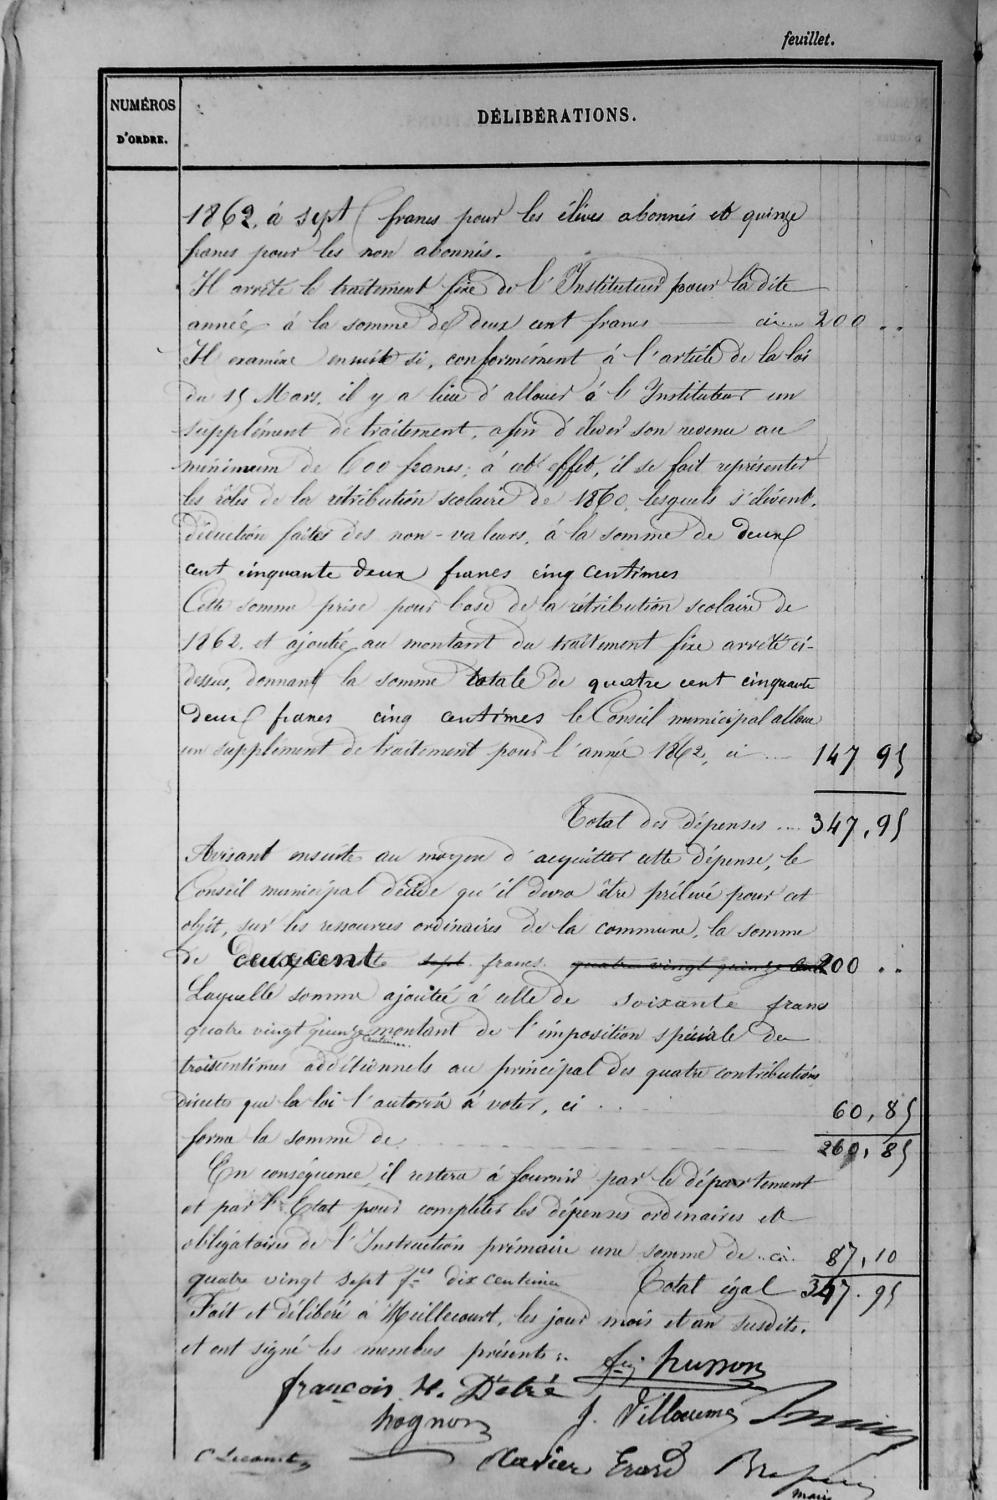 feuillet.
NUMÉROS
D'ORDRE.
DÉLIBÉRATIONS.
1862, à sept francs pour les élèves abonnés et quinze
francs pour les non abonnés.
Il arrête le traitement fixe de l'Instituteur pour la dite
année à la somme de deux cent francs ci 200 . .
Il examine ensuite si, conformément à l'article de la loi
du 15 Mars, il y a lieu d'allouer à l'Instituteur un
supplément de traitement, afin d'élever son revenu au
minimum de 600 francs; à cet effet, il se fait représenter
les rôles de la rétribution scolaire de 1860, lesquels s'élèvent,
déduction faites des non-valeurs, à la somme de deux
cent cinquante deux francs cinq centimes
Cette somme prise pour base de la rétribution scolaire de
1862, et ajoutée au montant du traitement fixe arrêté ci-
dessus, donnant la somme totale de quatre cent cinquante
deux francs cinq centimes le Conseil municipal alloue
un supplément de traitement pour l'année 1862, ci .... 147 95
Total des dépenses .... 347,95
Avisant ensuite au moyen d'acquitter cette dépense, le
Conseil municipal décide qu'il devra être prélevé pour cet
objet, sur les ressources ordinaires de la commune, la somme
de deux cent sept francs quatre vingt quinze 200 . .
Laquelle somme ajoutée à celle de soixante francs
quatre vingt quinze centimes montant de l'imposition spéciale de
trois centimes additionnels au principal des quatre contributions
directes que la loi l'autorise à voter, ci . . 60,85
forme la somme de 260,85
En conséquence il restera à fournir par le département
et par l'Etat pour compléter les dépenses ordinaires et
obligatoires de l'Instruction primaire une somme de .. ci. 87,10
quatre vingt sept fcs dix centimes Total égal 347.95
Fait et délibéré à Meillecourt, les jour mois et an susdits.
et ont signé les membres présents:
husson
françois H. Détré
hognon J. Villaumé
Xavier Erard
maire